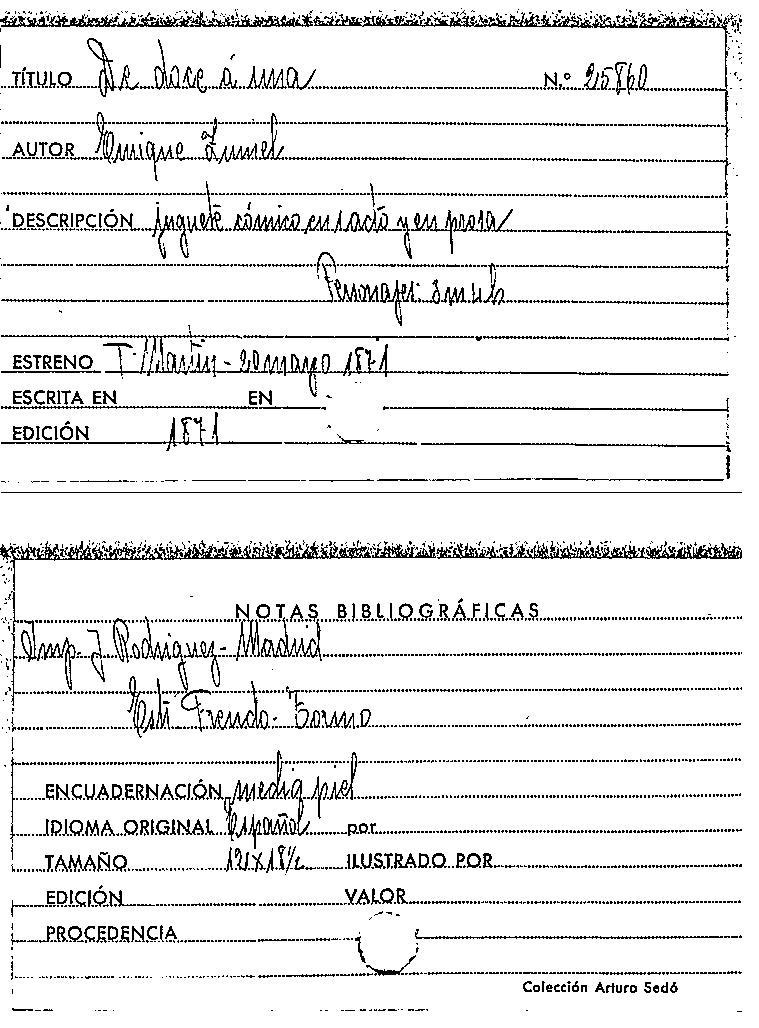 TÍTULO De doce á una N.º 25860
AUTOR Enrique Zumel
DESCRIPCIÓN juguete cómico en 1 acto y en prosa
Personajes:
ESTRENO T. Martin - 20 mayo 1871
ESCRITA EN EN
EDICIÓN 1871
NOTAS BIBLIOGRÁFICAS
Imp. J Rodriguez - Madrid
ENCUADERNACIÓN media piel
IDIOMA ORIGINAL Español por
TAMAÑO ILUSTRADO POR
EDICIÓN VALOR
PROCEDENCIA
Colección Arturo Sedó